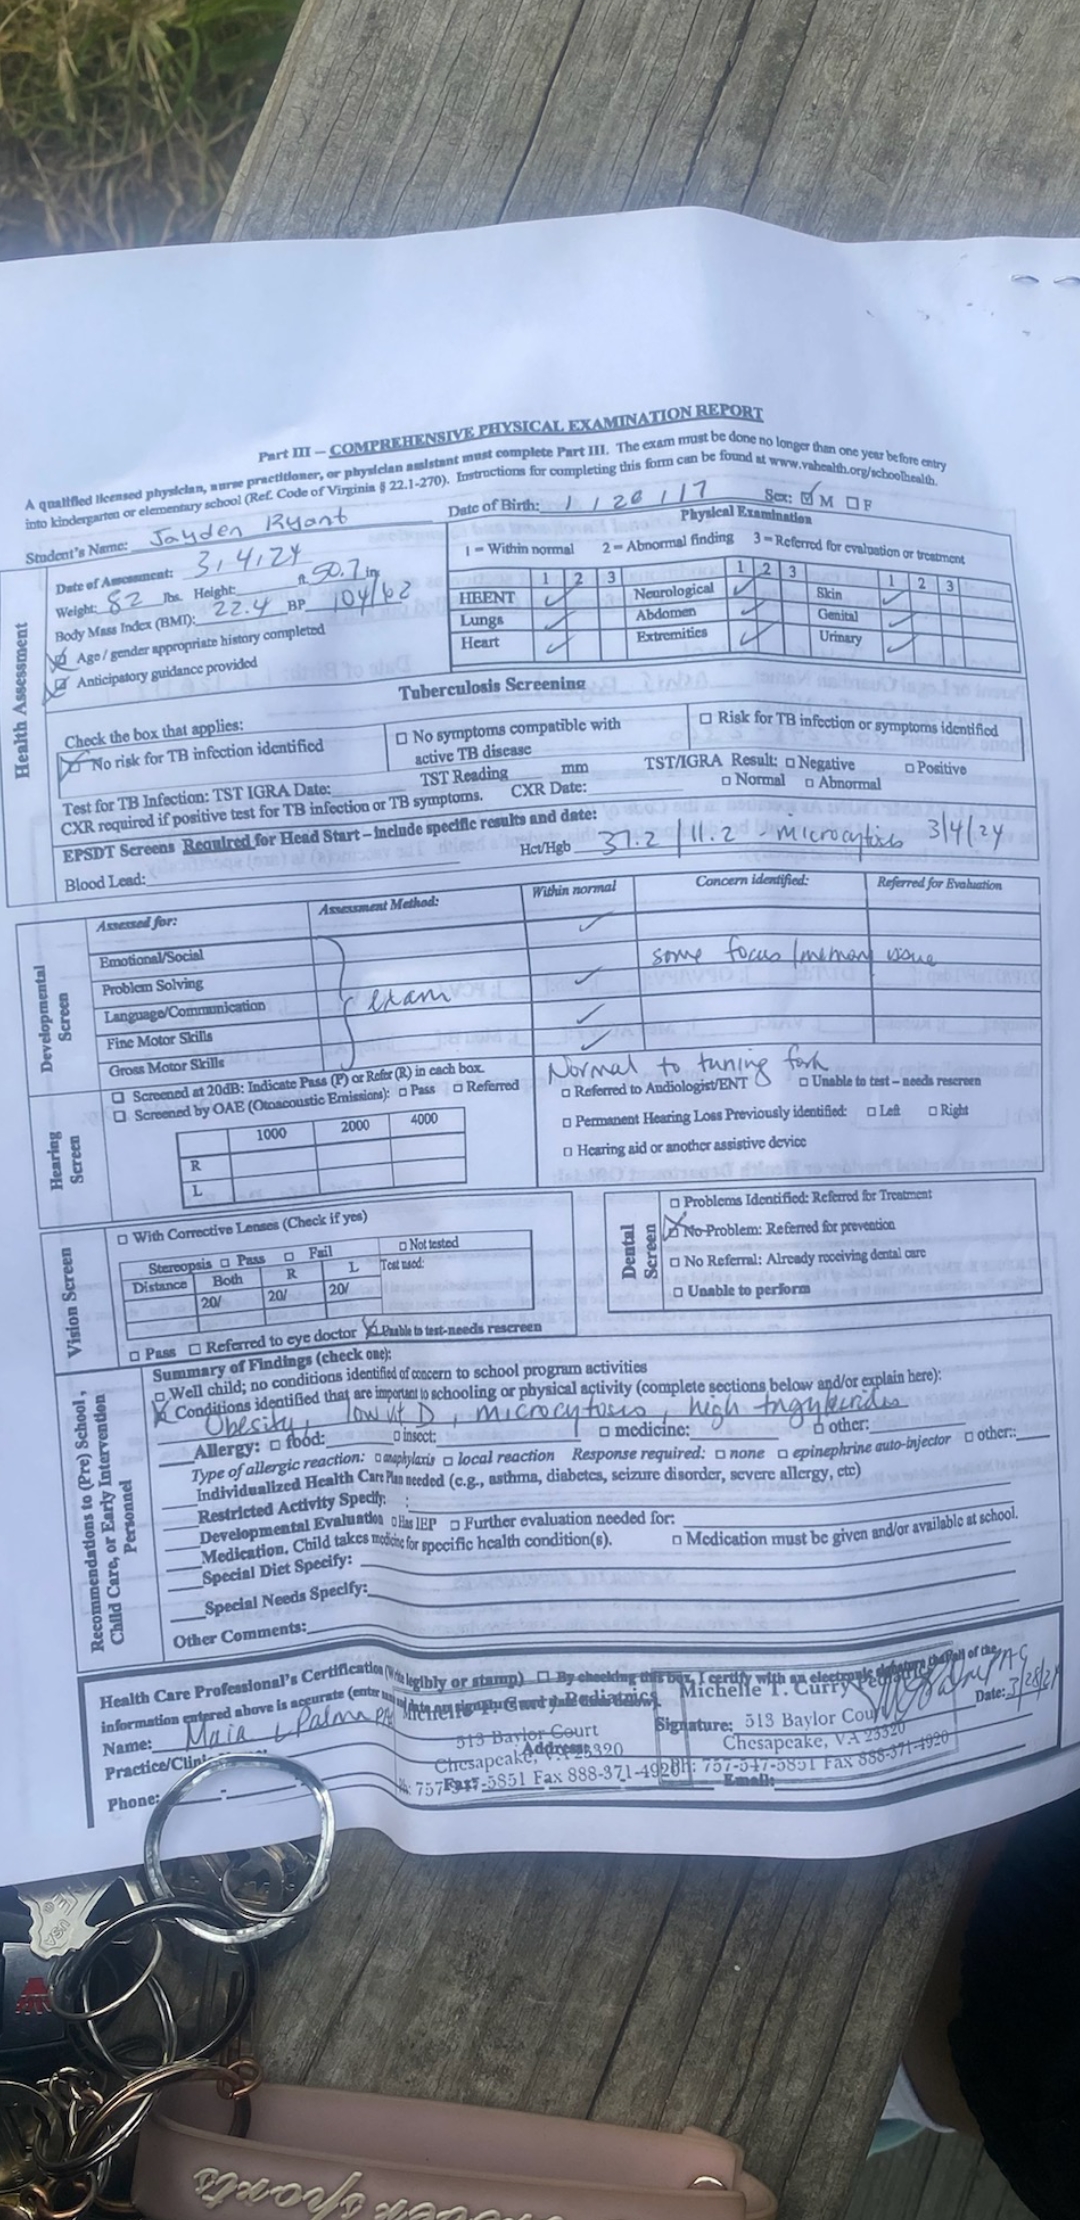 Part III – COMPREHENSIVE PHYSICAL EXAMINATION REPORT
A qualified licensed physician, nurse practitioner, or physician assistant must complete Part III. The exam must be done no longer than one year before entry
into kindergarten or elementary school (Ref. Code of Virginia § 22.1-270). Instructions for completing this form can be found at www.vahealth.org/schoolhealth.
Student's Name: Jayden Ryant Date of Birth: 1 / 20 / 17 Sex: ☑ M ☐ F
Health Assessment
Date of Assessment: 3/4/24
Weight: 82 lbs. Height: ft. 50.7 in
Body Mass Index (BMI): 22.4 BP 104/62
☑ Age / gender appropriate history completed
☑ Anticipatory guidance provided
Physical Examination
1 = Within normal 2 = Abnormal finding 3 = Referred for evaluation or treatment
1 2 3 1 2 3 1 2 3
HEENT ✓ Neurological ✓ Skin ✓
Lungs Abdomen ✓ Genital ✓
Heart ✓ Extremities ✓ Urinary ✓
Tuberculosis Screening
Check the box that applies:
☒ No risk for TB infection identified
☐ No symptoms compatible with
active TB disease
☐ Risk for TB infection or symptoms identified
Test for TB Infection: TST IGRA Date: TST Reading mm TST/IGRA Result: ☐ Negative ☐ Positive
CXR required if positive test for TB infection or TB symptoms. CXR Date: ☐ Normal ☐ Abnormal
EPSDT Screens Required for Head Start – include specific results and date:
Blood Lead: Hct/Hgb 37.2 / 11.2 - microcytosis 3/4/24
Developmental Screen
Assessed for: Assessment Method: Within normal Concern identified: Referred for Evaluation
Emotional/Social ✓
Problem Solving some focus/memory issue
Language/Communication exam ✓
Fine Motor Skills ✓
Gross Motor Skills ✓
Hearing Screen
☐ Screened at 20dB: Indicate Pass (P) or Refer (R) in each box.
☐ Screened by OAE (Otoacoustic Emissions): ☐ Pass ☐ Referred
1000 2000 4000
R
L
Normal to tuning fork
☐ Referred to Audiologist/ENT ☐ Unable to test – needs rescreen
☐ Permanent Hearing Loss Previously identified: ☐ Left ☐ Right
☐ Hearing aid or another assistive device
Vision Screen
☐ With Corrective Lenses (Check if yes)
Stereopsis ☐ Pass ☐ Fail ☐ Not tested
Distance Both R L Test used:
20/ 20/ 20/
☐ Pass ☐ Referred to eye doctor ☒ Unable to test-needs rescreen
Dental Screen
☐ Problems Identified: Referred for Treatment
☒ No Problem: Referred for prevention
☐ No Referral: Already receiving dental care
☐ Unable to perform
Recommendations to (Pre) School, Child Care, or Early Intervention Personnel
Summary of Findings (check one):
☐ Well child; no conditions identified of concern to school program activities
☒ Conditions identified that are important to schooling or physical activity (complete sections below and/or explain here):
Obesity, low vit D, microcytosis, high triglycerides
Allergy: ☐ food: ☐ insect: ☐ medicine: ☐ other:
Type of allergic reaction: ☐ anaphylaxis ☐ local reaction Response required: ☐ none ☐ epinephrine auto-injector ☐ other:
Individualized Health Care Plan needed (e.g., asthma, diabetes, seizure disorder, severe allergy, etc)
Restricted Activity Specify:
Developmental Evaluation ☐ Has IEP ☐ Further evaluation needed for:
Medication. Child takes medicine for specific health condition(s). ☐ Medication must be given and/or available at school.
Special Diet Specify:
Special Needs Specify:
Other Comments:
Health Care Professional's Certification (Write legibly or stamp) ☐ By checking this box, I certify with an electronic signature that all of the
information entered above is accurate
Michelle T. Curry Pediatrics
Name: Signature: Date:
513 Baylor Court
513 Baylor Court
Practice/Clinic Address:
Chesapeake, VA 23320
Chesapeake, VA 23320
Phone: Fax: Email:
757-547-5851 Fax 888-371-4920
757-547-5851 Fax 888-371-4920
USA